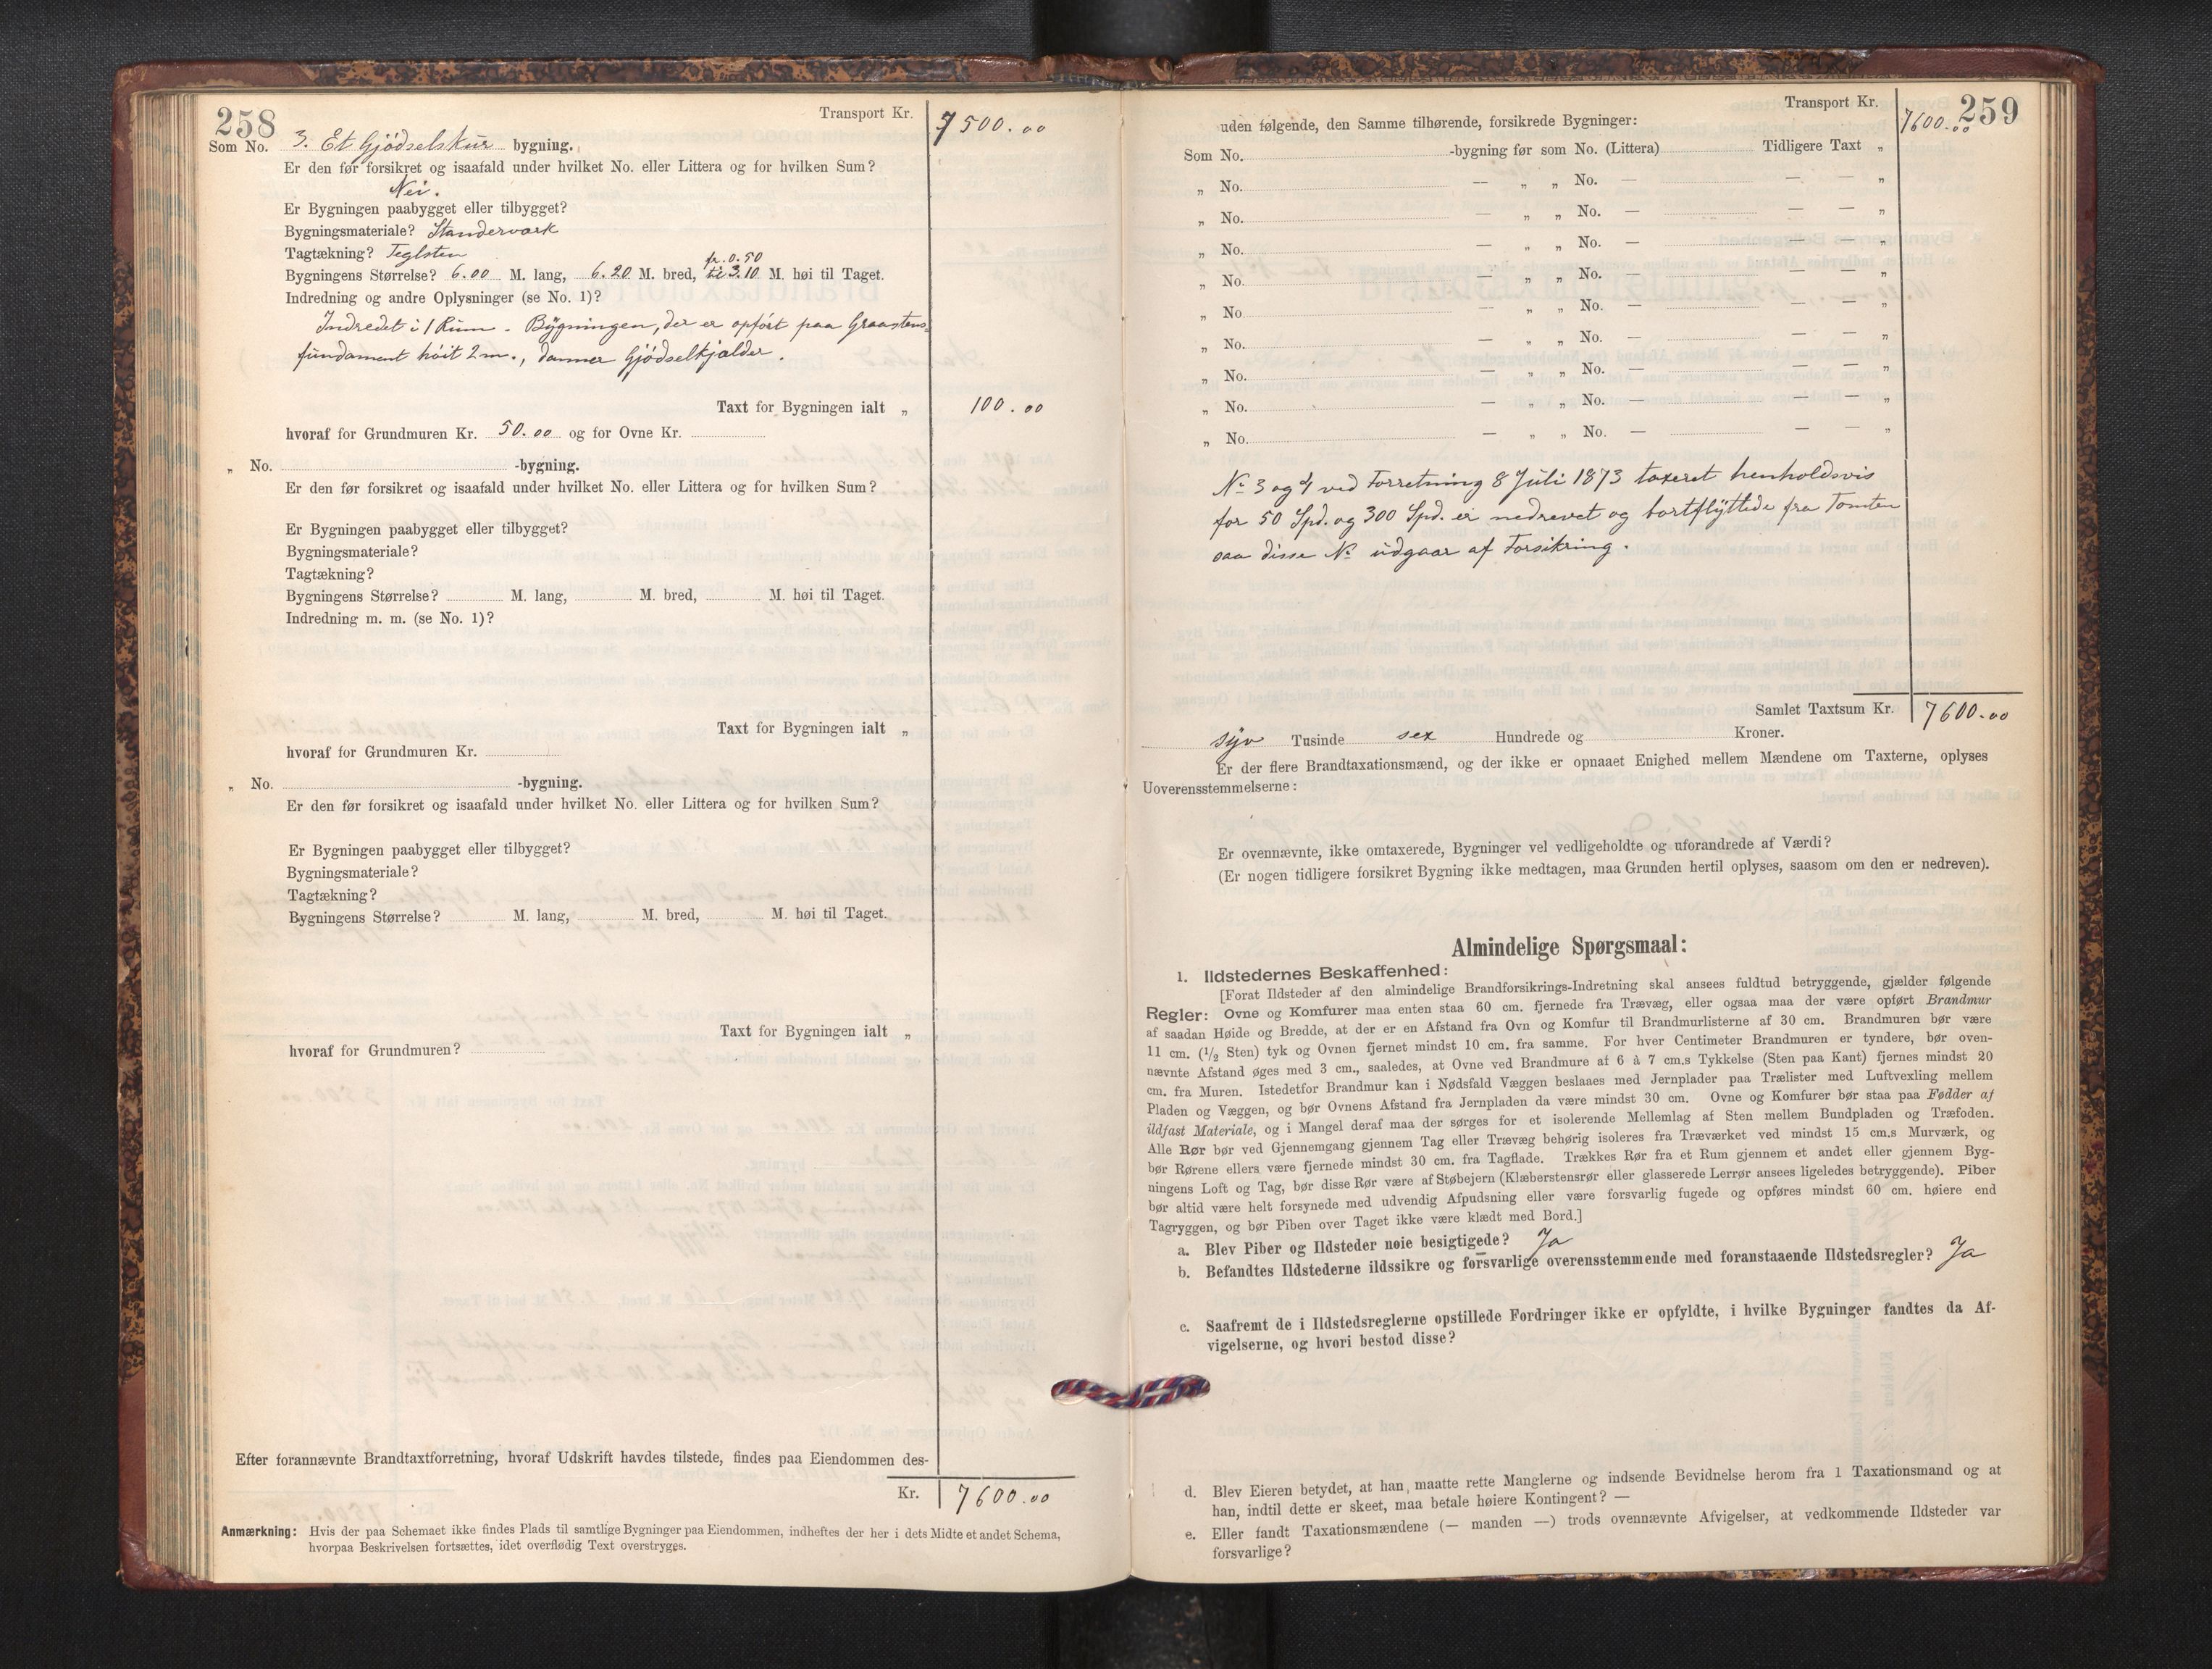 258
Transport Kr. 7500.00
Som No. 3. Et Gjödselskur bygning.
Er den før forsikret og isaafald under hvilket No. eller Littera og for hvilken Sum?
Nei.
Er Bygningen paabygget eller tilbygget?
Bygningsmateriale? Standerværk
Tagtækning? Teglsten
fr. 0.50
Bygningens Størrelse? 6.00 M. lang, 6.20 M. bred, til 3.10 M. høi til Taget.
Indredning og andre Oplysninger (se No. 1)?
Indredet i 1 Rum. Bygningen, der er opfört paa Graastens-
fundament höit 2 m., danner Gjödselkjælder.
Taxt for Bygningen ialt „ 100.00
hvoraf for Grundmuren Kr. 50.00 og for Ovne Kr.
„ No. -bygning.
Er den før forsikret og isaafald under hvilket No. eller Littera og for hvilken Sum?
Er Bygningen paabygget eller tilbygget?
Bygningsmateriale?
Tagtækning?
Bygningens Størrelse? M. lang, M. bred, M. høi til Taget.
Indredning m. m. (se No. 1)?
Taxt for Bygningen ialt „
hvoraf for Grundmuren Kr.
„ No. -bygning.
Er den før forsikret og isaafald under hvilket No. eller Littera og for hvilken Sum?
Er Bygningen paabygget eller tilbygget?
Bygningsmateriale?
Tagtækning?
Bygningens Størrelse? M. lang, M. bred, M. høi til Taget.
Taxt for Bygningen ialt „
hvoraf for Grundmuren?
Efter forannævnte Brandtaxtforretning, hvoraf Udskrift havdes tilstede, findes paa Eiendommen des-
Kr. 7600.00
Anmærkning: Hvis der paa Schemaet ikke findes Plads til samtlige Bygninger paa Eiendommen, indheftes der her i dets Midte et andet Schema,
hvorpaa Beskrivelsen fortsættes, idet overflødig Text overstryges.
259
Transport Kr. 7600.00
uden følgende, den Samme tilhørende, forsikrede Bygninger:
Som No. -bygning før som No. (Littera) Tidligere Taxt „
„ No. — „ „ No. — — — „
„ No. — „ „ No. — — — „
„ No. — „ „ No. — — — „
„ No. — „ „ No. — — — „
„ No. — „ „ No. — — — „
„ No. — „ „ No. — — — „
„ No. — „ „ No. — — — „
„ No. — „ „ No. — — — „
„ No. — „ „ No. — — — „
No 3 og 4 ved Forretning 8 Juli 1873 taxeret henholdsvis
for 50 Spd. og 300 Spd. er nedrevet og bortflyttede fra Tomten
saa disse No udgaar af Forsikring.
Samlet Taxtsum Kr. 7600.00
syv Tusinde sex Hundrede og Kroner.
Er der flere Brandtaxationsmænd, og der ikke er opnaaet Enighed mellem Mændene om Taxterne, oplyses
Uoverensstemmelserne:
Er ovennævnte, ikke omtaxerede, Bygninger vel vedligeholdte og uforandrede af Værdi?
(Er nogen tidligere forsikret Bygning ikke medtagen, maa Grunden hertil oplyses, saasom om den er nedreven).
Almindelige Spørgsmaal:
1. Ildstedernes Beskaffenhed:
[Forat Ildsteder af den almindelige Brandforsikrings-Indretning skal ansees fuldtud betryggende, gjælder følgende
Regler: Ovne og Komfurer maa enten staa 60 cm. fjernede fra Trævæg, eller ogsaa maa der være opført Brandmur
af saadan Høide og Bredde, at der er en Afstand fra Ovn og Komfur til Brandmurlisterne af 30 cm. Brandmuren bør være
11 cm. (1/2 Sten) tyk og Ovnen fjernet mindst 10 cm. fra samme. For hver Centimeter Brandmuren er tyndere, bør oven-
nævnte Afstand øges med 3 cm., saaledes, at Ovne ved Brandmure af 6 à 7 cm.s Tykkelse (Sten paa Kant) fjernes mindst 20
cm. fra Muren. Istedetfor Brandmur kan i Nødsfald Væggen beslaaes med Jernplader paa Trælister med Luftvexling mellem
Pladen og Væggen, og bør Ovnens Afstand fra Jernpladen da være mindst 30 cm. Ovne og Komfurer bør staa paa Fødder af
ildfast Materiale, og i Mangel deraf maa der sørges for et isolerende Mellemlag af Sten mellem Bundpladen og Træfoden.
Alle Rør bør ved Gjennemgang gjennem Tag eller Trævæg behørig isoleres fra Træværket ved mindst 15 cm.s Murværk, og
bør Rørene ellers være fjernede mindst 30 cm. fra Tagflade. Trækkes Rør fra et Rum gjennem et andet eller gjennem Byg-
ningens Loft og Tag, bør disse Rør være af Støbejern (Klæberstensrør eller glasserede Lerrør ansees ligeledes betryggende). Piber
bør altid være helt forsynede med udvendig Afpudsning eller være forsvarlig fugede og opføres mindst 60 cm. høiere end
Tagryggen, og bør Piben over Taget ikke være klædt med Bord.]
a. Blev Piber og Ildsteder nøie besigtigede? Ja
b. Befandtes Ildstederne ildssikre og forsvarlige overensstemmende med foranstaaende Ildstedsregler? Ja
c. Saafremt de i Ildstedsreglerne opstillede Fordringer ikke er opfyldte, i hvilke Bygninger fandtes da Af-
vigelserne, og hvori bestod disse?
d. Blev Eieren betydet, at han maatte rette Manglerne og indsende Bevidnelse herom fra 1 Taxationsmand og at
han, indtil dette er skeet, maa betale høiere Kontingent? —
e. Eller fandt Taxationsmændene (— manden —) trods ovennævnte Afvigelser, at vedkommende Ildsteder var
forsvarlige?